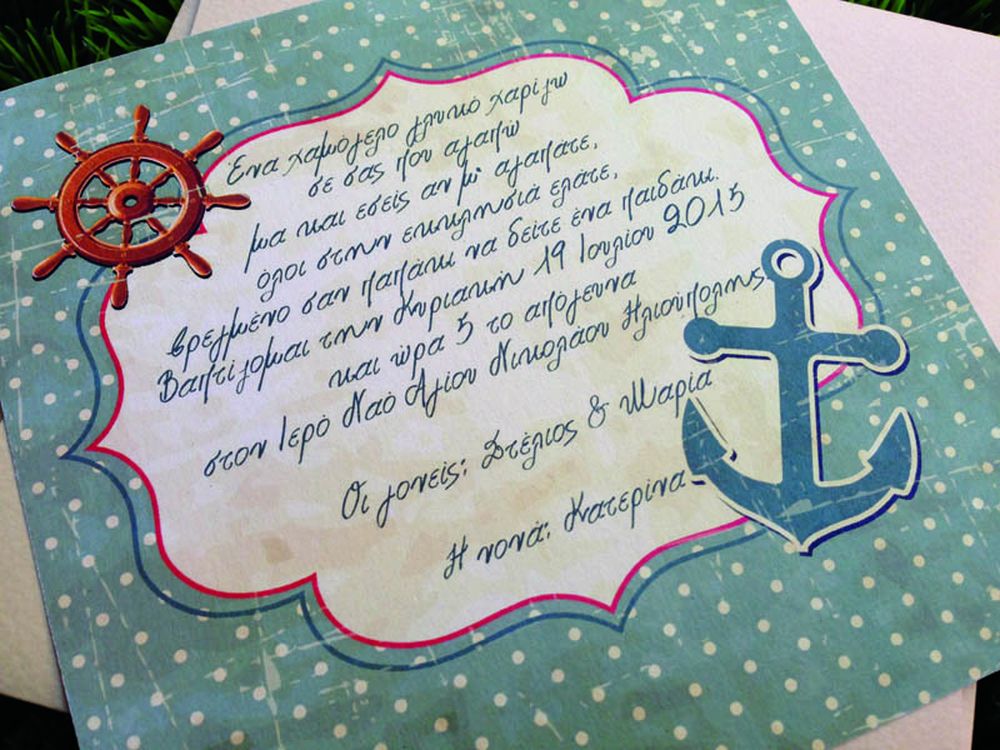 Ένα χαμόγελο γλυκό χαρίζω
σε σας που αγαπώ
μα και εσείς αν μ' αγαπάτε,
όλοι στην εκκλησιά ελάτε,
βρεγμένο σαν παπάκι να δείτε ένα παιδάκι.
Βαπτίζομαι την Κυριακή 19 Ιουλίου 2015
και ώρα 5 το απόγευμα
στον Ιερό Ναό Αγίου Νικολάου Ηλιούπολης
Οι γονείς: Στέλιος & Μαρία
Η νονά: Κατερίνα